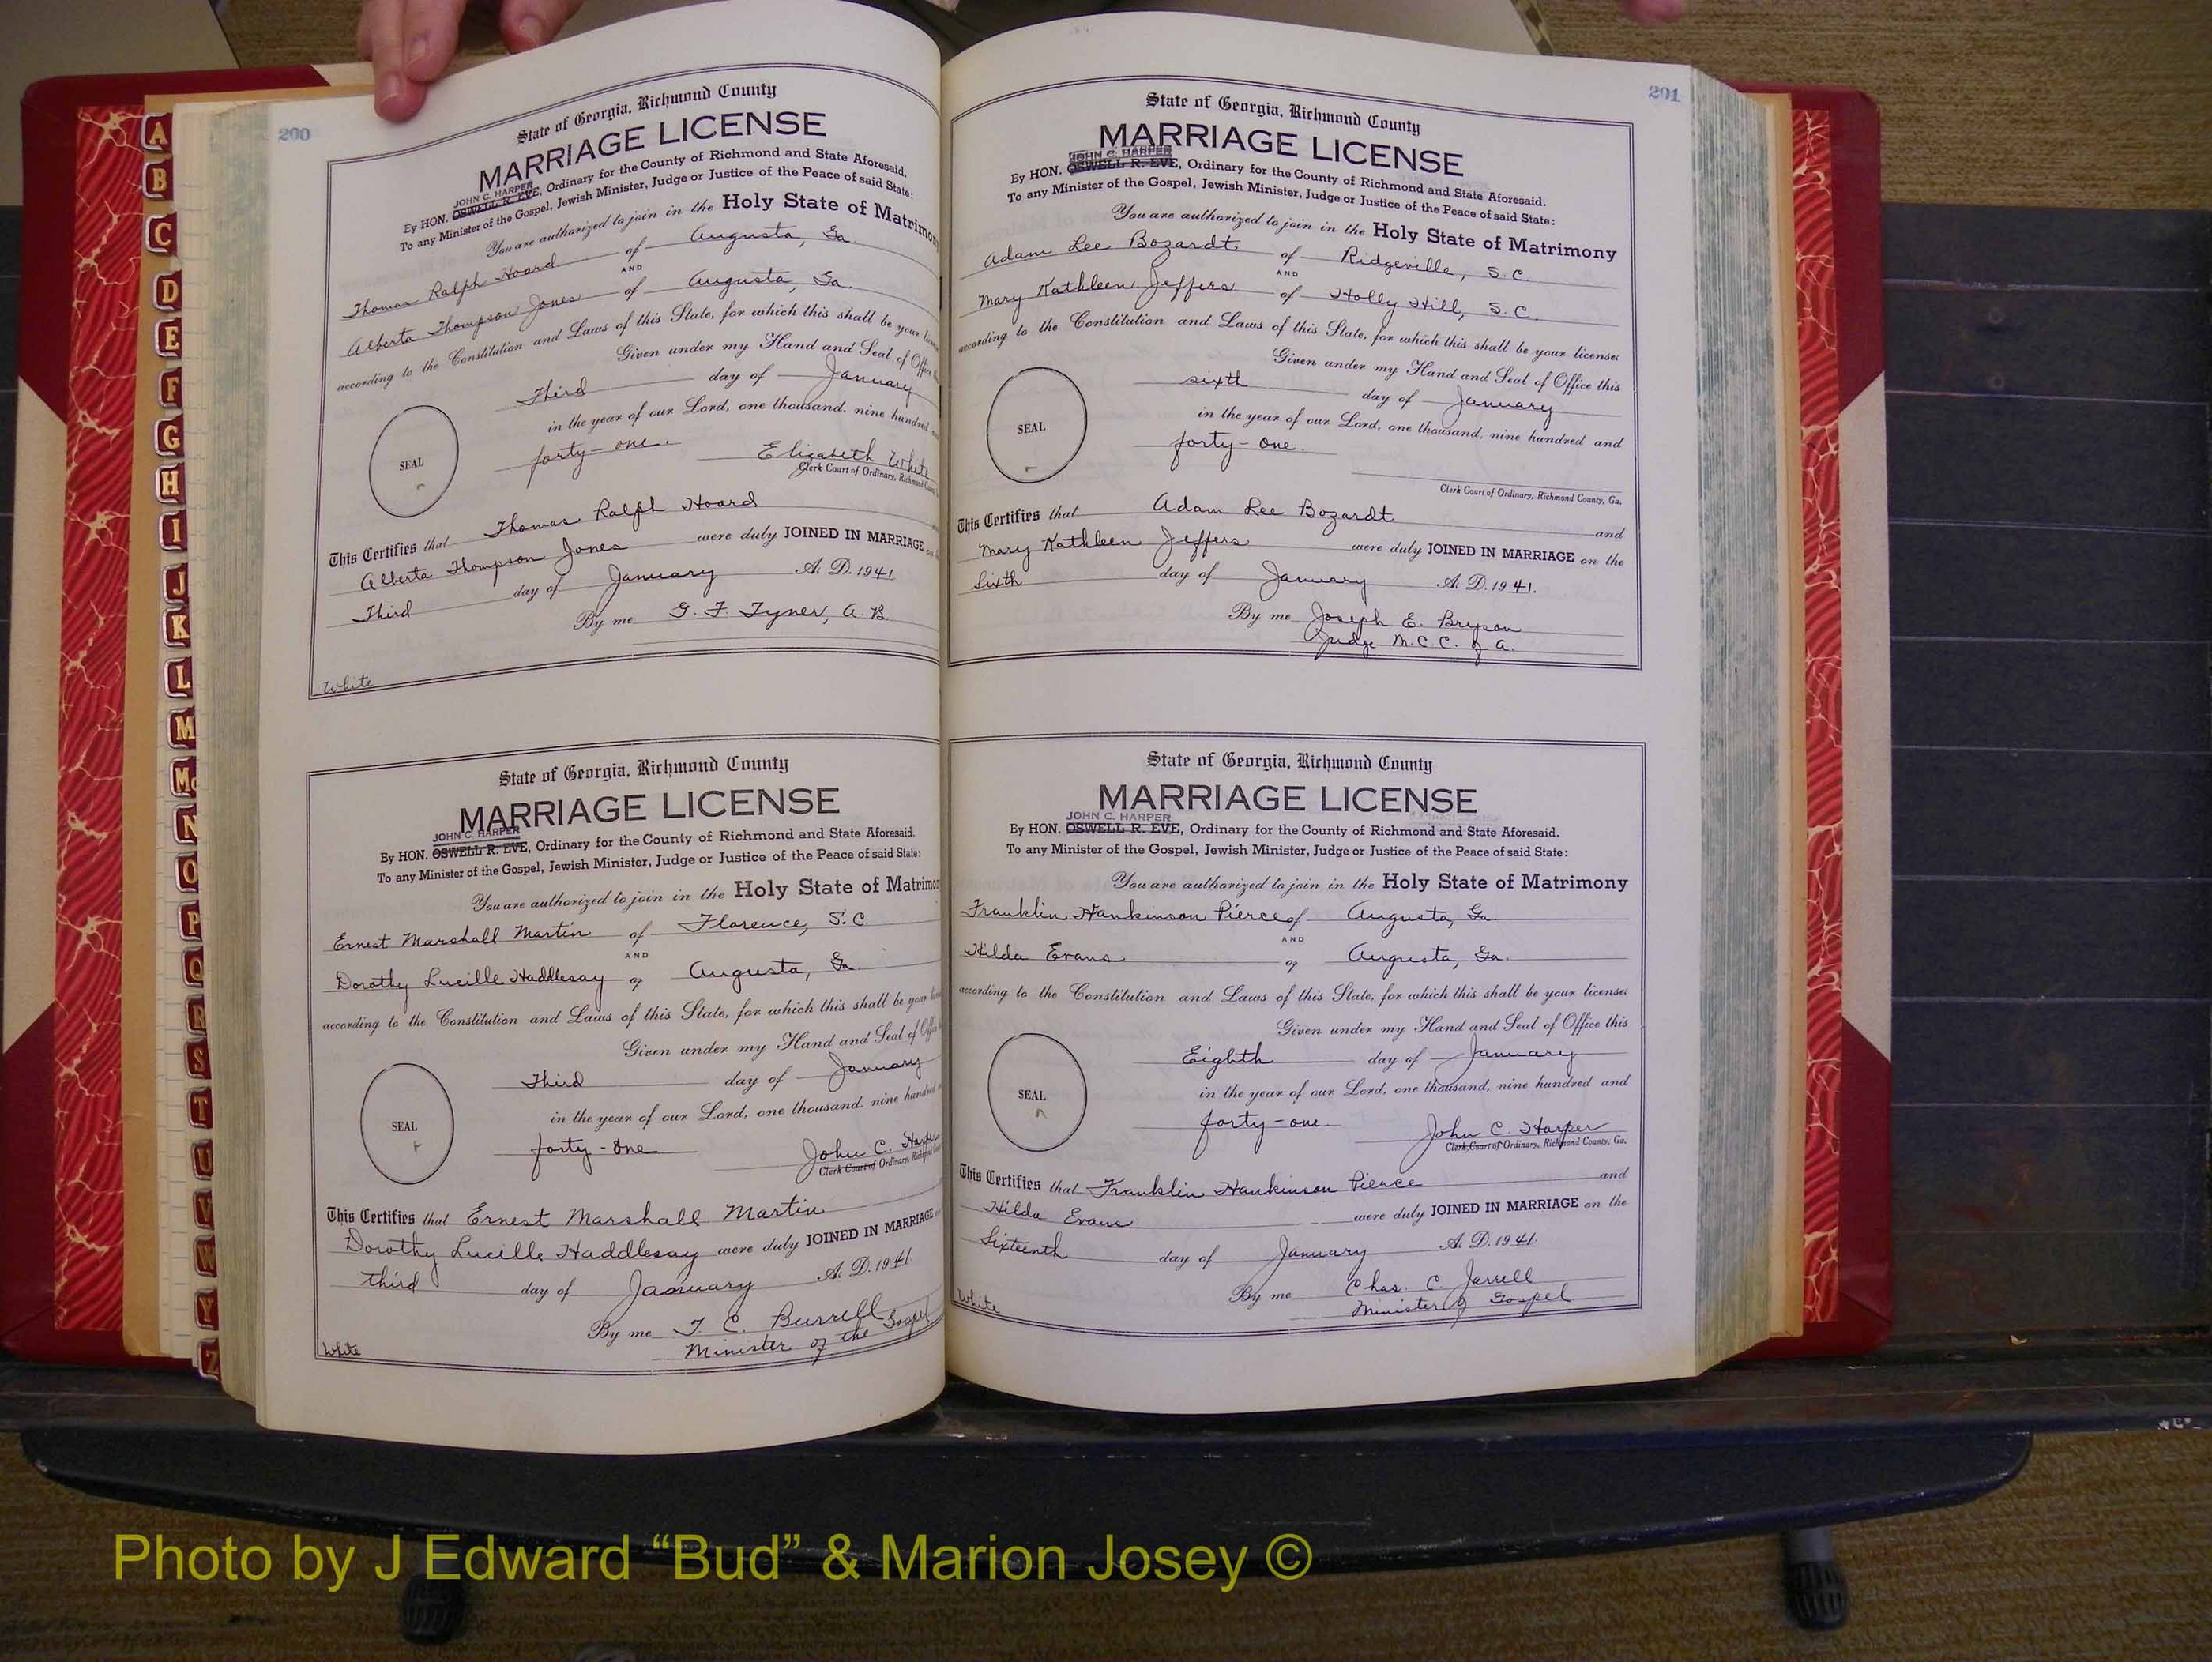 200
State of Georgia, Richmond County
MARRIAGE LICENSE
JOHN C. HARPER
By HON. OSWELL R. EVE, Ordinary for the County of Richmond and State Aforesaid.
To any Minister of the Gospel, Jewish Minister, Judge or Justice of the Peace of said State:
You are authorized to join in the Holy State of Matrimony
Thomas Ralph Hoard of Augusta, Ga.
AND
Alberta Thompson Jones of Augusta, Ga.
according to the Constitution and Laws of this State, for which this shall be your
Given under my Hand and Seal of Office
Third day of January
in the year of our Lord, one thousand, nine hundred
forty-one.
Elizabeth White
SEAL
Clerk Court of Ordinary, Richmond
This Certifies that Thomas Ralph Hoard
Alberta Thompson Jones were duly JOINED IN MARRIAGE
Third day of January A. D. 1941
By me G. F. Tyner, A. B.
White
State of Georgia, Richmond County
MARRIAGE LICENSE
JOHN C. HARPER
By HON. OSWELL R. EVE, Ordinary for the County of Richmond and State Aforesaid.
To any Minister of the Gospel, Jewish Minister, Judge or Justice of the Peace of said State:
You are authorized to join in the Holy State of Matrimo
Ernest Marshall Martin of Florence, S.C.
AND
Dorothy Lucille Haddlesay of Augusta, Ga.
according to the Constitution and Laws of this State, for which this shall be your
Given under my Hand and Seal of
Third day of January
in the year of our Lord, one thousand, nine
forty-one
John C. Harper
SEAL
Clerk Court of Ordinary,
This Certifies that Ernest Marshall Martin
Dorothy Lucille Haddlesay were duly JOINED IN MARRIAGE
third day of January A. D. 1941
By me T. C. Burrell
Minister of the Gospel
White
201
State of Georgia, Richmond County
MARRIAGE LICENSE
JOHN C. HARPER
By HON. OSWELL R. EVE, Ordinary for the County of Richmond and State Aforesaid.
To any Minister of the Gospel, Jewish Minister, Judge or Justice of the Peace of said State:
You are authorized to join in the Holy State of Matrimony
Adam Lee Bozardt of Ridgeville, S.C.
AND
Mary Kathleen Jeffers of Holly Hill, S.C.
according to the Constitution and Laws of this State, for which this shall be your license:
Given under my Hand and Seal of Office this
sixth day of January
in the year of our Lord, one thousand, nine hundred and
forty-one.
SEAL
Clerk Court of Ordinary, Richmond County, Ga.
This Certifies that Adam Lee Bozardt and
Mary Kathleen Jeffers were duly JOINED IN MARRIAGE on the
Sixth day of January A. D. 1941.
By me Joseph E. Bryson
Judge M.C.C. of A.
State of Georgia, Richmond County
MARRIAGE LICENSE
JOHN C. HARPER
By HON. OSWELL R. EVE, Ordinary for the County of Richmond and State Aforesaid.
To any Minister of the Gospel, Jewish Minister, Judge or Justice of the Peace of said State:
You are authorized to join in the Holy State of Matrimony
Franklin Hankinson Pierce of Augusta, Ga.
AND
Hilda Evans of Augusta, Ga.
according to the Constitution and Laws of this State, for which this shall be your license:
Given under my Hand and Seal of Office this
Eighth day of January
in the year of our Lord, one thousand, nine hundred and
forty-one.
John C. Harper
SEAL
Clerk, Court of Ordinary, Richmond County, Ga.
This Certifies that Franklin Hankinson Pierce and
Hilda Evans were duly JOINED IN MARRIAGE on the
Sixteenth day of January A. D. 1941.
By me Chas. C. Jarrell
Minister of Gospel
White
A
B
C
D
E
F
G
H
I
J
K
L
M
Mc
N
O
P
Q
R
S
T
U
V
W
Y
Z
Photo by J Edward “Bud” & Marion Josey ©